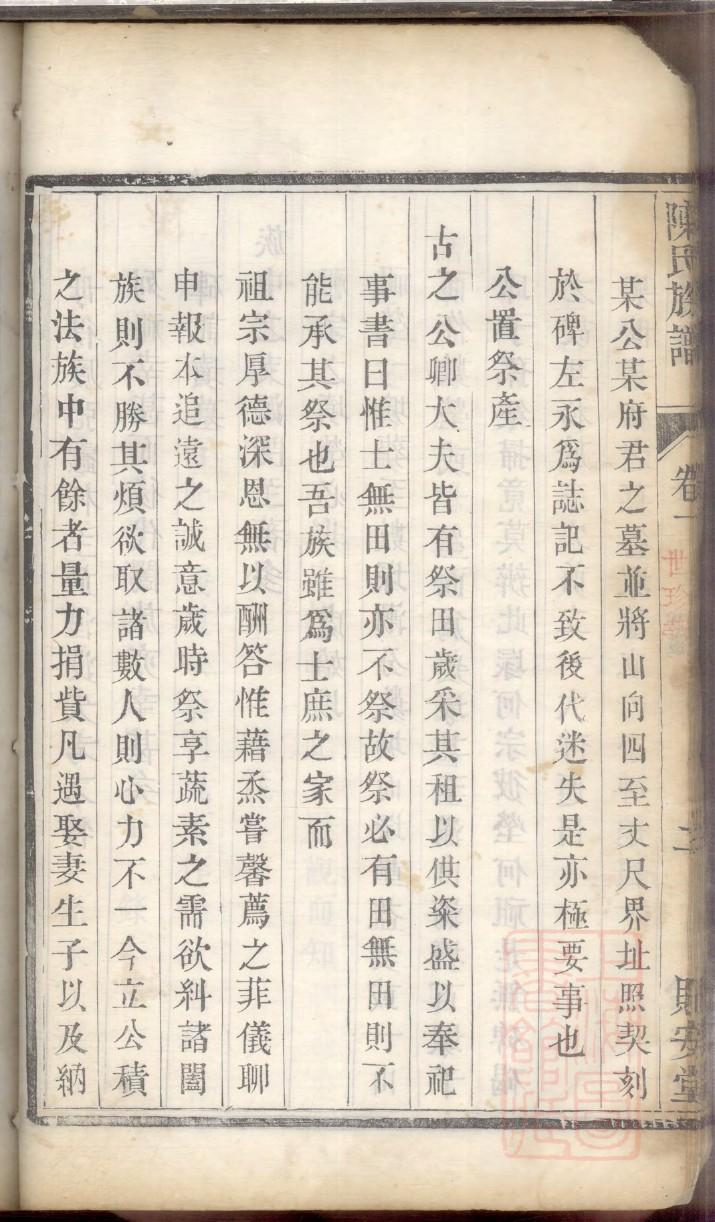 陳氏族譜 卷一 二
某公某府君之墓並將山向四至丈尺界址照契刻
於碑左永爲誌記不致後代迷失是亦極要事也
公置祭產
古之公卿大夫皆有祭田歲采其租以供粢盛以奉祀
事書曰惟士無田則亦不祭故祭必有田無田則不
能承其祭也吾族雖爲士庶之家而
祖宗厚德深恩無以酬答惟藉烝嘗馨薦之菲儀聊
申報本追遠之誠意歲時祭享蔬素之需欲糾諸闔
族則不勝其煩欲取諸數人則心力不一今立公積
之法族中有餘者量力捐貲凡遇娶妻生子以及納